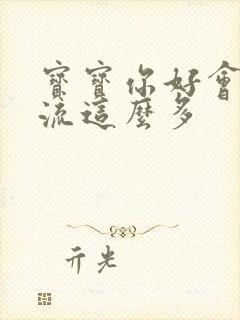 寶寶你好會
流這麼多
亓光